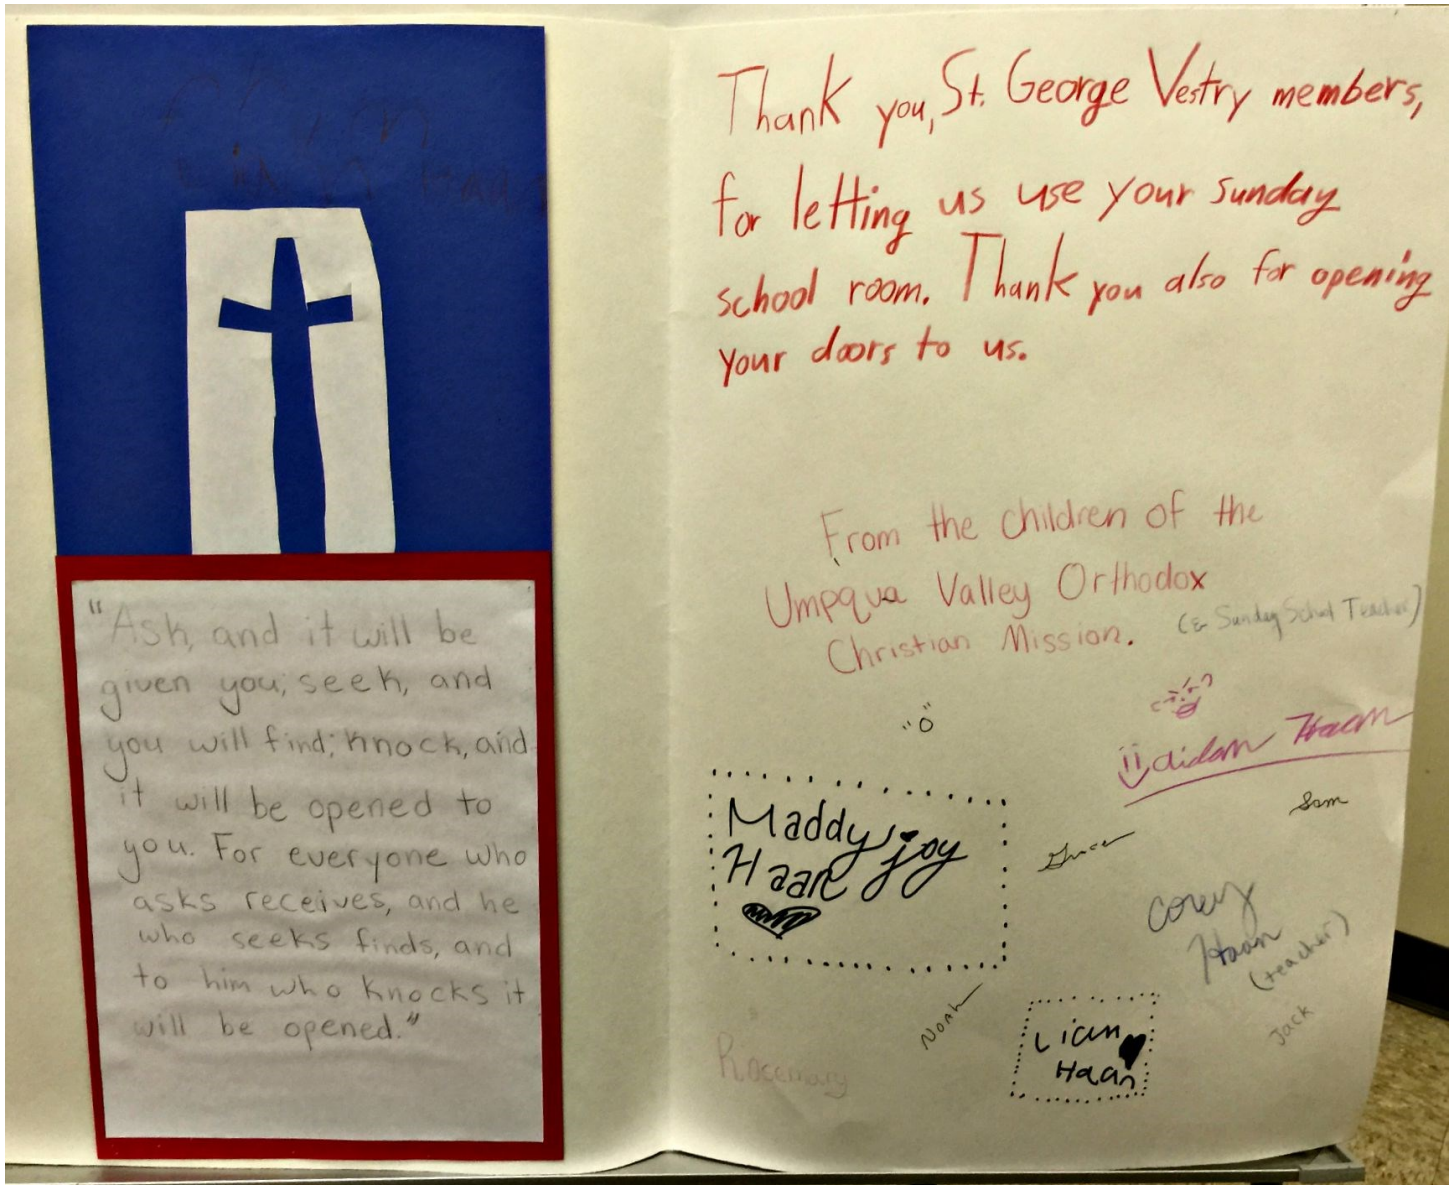 "Ask, and it will be
given you; seek, and
you will find; knock, and
it will be opened to
you. For everyone who
asks receives, and he
who seeks finds, and
to him who knocks it
will be opened."
Thank you, St. George Vestry members,
for letting us use your Sunday
school room. Thank you also for opening
your doors to us.
From the children of the
Umpqua Valley Orthodox
Christian Mission.
(& Sunday School Teacher)
Aidan Haan
Sam
Maddy joy
Haan
Grace
Corey
Haan
(teacher)
Noah
Lian
Haan
Jack
Rosemary